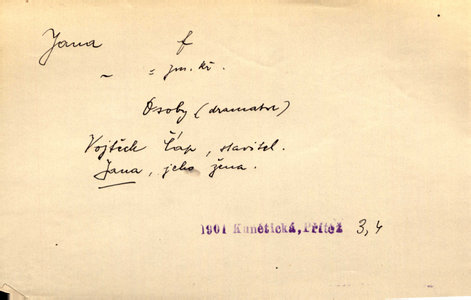 Jana f
~ = jm. kř.
Osoby (dramatu)
Vojtěch Čáp, stavitel.
Jana, jeho žena.
1901 Kunětická, Přítěž 3,4